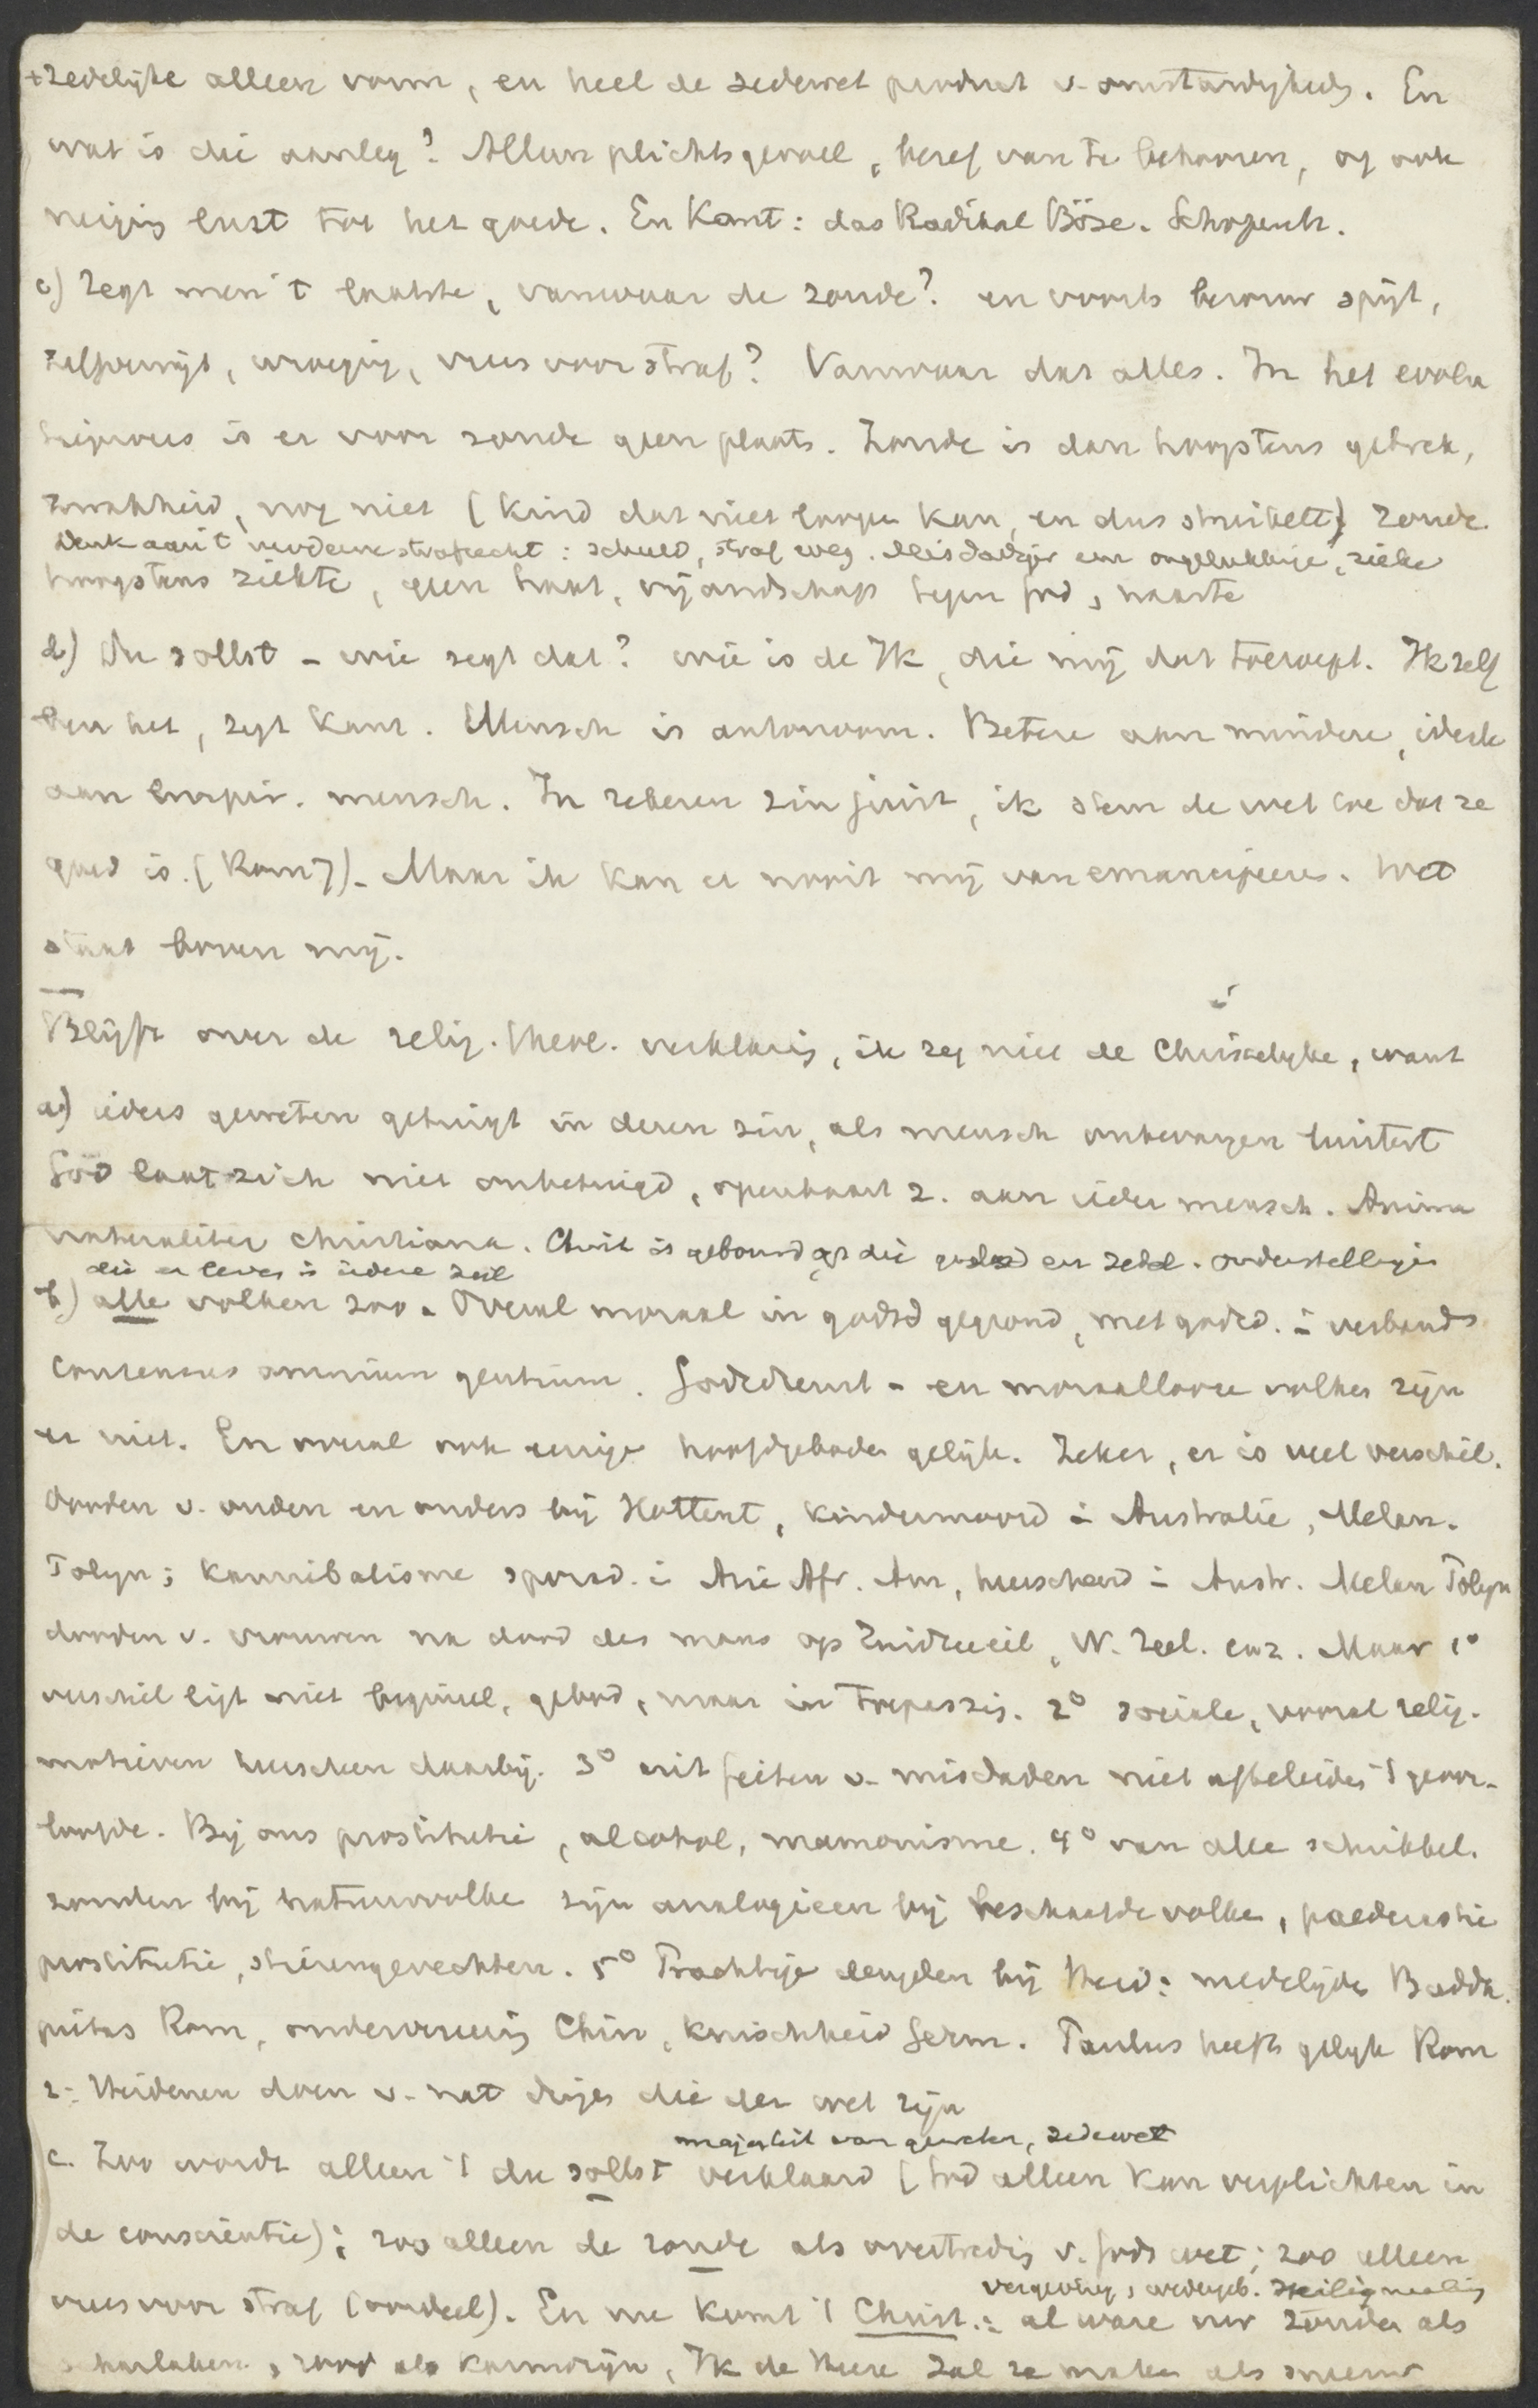 +zedelijke alleen vorm, en heel de zedewet product v. omstandighedn. En
wat is die aanleg? Alleen plichtsgevoel, besef van te behooren, of ook
neiging lust tot het goede. En Kant: das Radikal Böse. Schopenh.
c) Zegt men 't laatste, vanwaar de zonde? en voorts berouw spijt,
zelfverwijt, wroeging, vrees voor straf? Vanwaar dat alles. In het evolu
tieproces is er voor zonde geen plaats. Zonde is dan hoogstens gebrek,
zwakheid, nog niet (kind dat niet loopen kan, en dus struikelt) Zonde
Denk aan 't moderne strafrecht: schuld, straf weg. Misdadiger een ongelukkige, zieke
hoogstens ziekte, geen haat, vijandschap tegen God, naaste
d) Du sollst - wie zegt dat? wie is de Ik, die mij dat toeroept. Ik zelf
ben het, zegt Kant. Mensch is autonoom. Betere aan mindere, ideale
aan empir. mensch. In zekeren zin juist, ik stem de wet toe dat ze
goed is. (Rom 7). Maar ik kan er nooit mij van emancipeeren. Wet
staat boven mij.
Blijft over de relig. theol. verklaring, ik zeg niet de Christelijke, want
a) ieders geweten getuigt in dezen zin, als mensch onbevangen luistert
God laat zich niet onbetuigd, openbaart z. aan ieder mensch. Anima
naturaliter christiana. Christ is gebouwd op die godsd en zedel. onderstellingen
die er leven in iedere ziel
b) alle volken zoo. Overal moraal in godsd gegrond, met godsd. in verband
Consensus omnium gentium. Godsdienst- en moraallooze volken zijn
er niet. En overal ook eenige hoofdgeboden gelijk. Zeker, er is veel verschil.
Dooden v. ouden en ouders bij Hottent, kindermoord in Australie, Melan.
Polyn; kannibalisme sporad. in Azie Afr. Am, heerschend in Austr. Melan Polyn
dooden v. vrouwen na dood des mans op Zuidzeeeil, N. Zeel. enz. Maar 1°
verschil ligt niet beginsel, gebod, maar in toepassing. 2° sociale, vooral relig.
motieven heerschen daarbij. 3° uit feiten v. misdaden niet afteleiden 't geoor-
loofde. Bij ons prostitutie, alcohol, mamonisme. 4° van alle schrikkel.
zonden bij natuurvolken zijn analogieen bij beschaafde volken, paederastie
prostitutie, stierengevechten. 5° Prachtige deugden bij Heid: medelijden Boeddh.
pietas Rom, onderwerping Chin, kuischheid Germ. Paulus heeft gelijk Rom
2: Heidenen doen v. nat dingen die der wet zijn
majesteit van geweten, zedewet
c. Zoo wordt alleen 't du sollst verklaard (God alleen kan verplichten in
de conscientie); zoo alleen de zonde als overtreding v. Gods wet; zoo alleen
vrees voor straf (oordeel). En nu komt 't Christ.: al ware uw zonden als
vergeving, wedergeb. Heiligmaking
scharlaken, rood als karmozijn, Ik de Heere zal ze maken als sneeuw